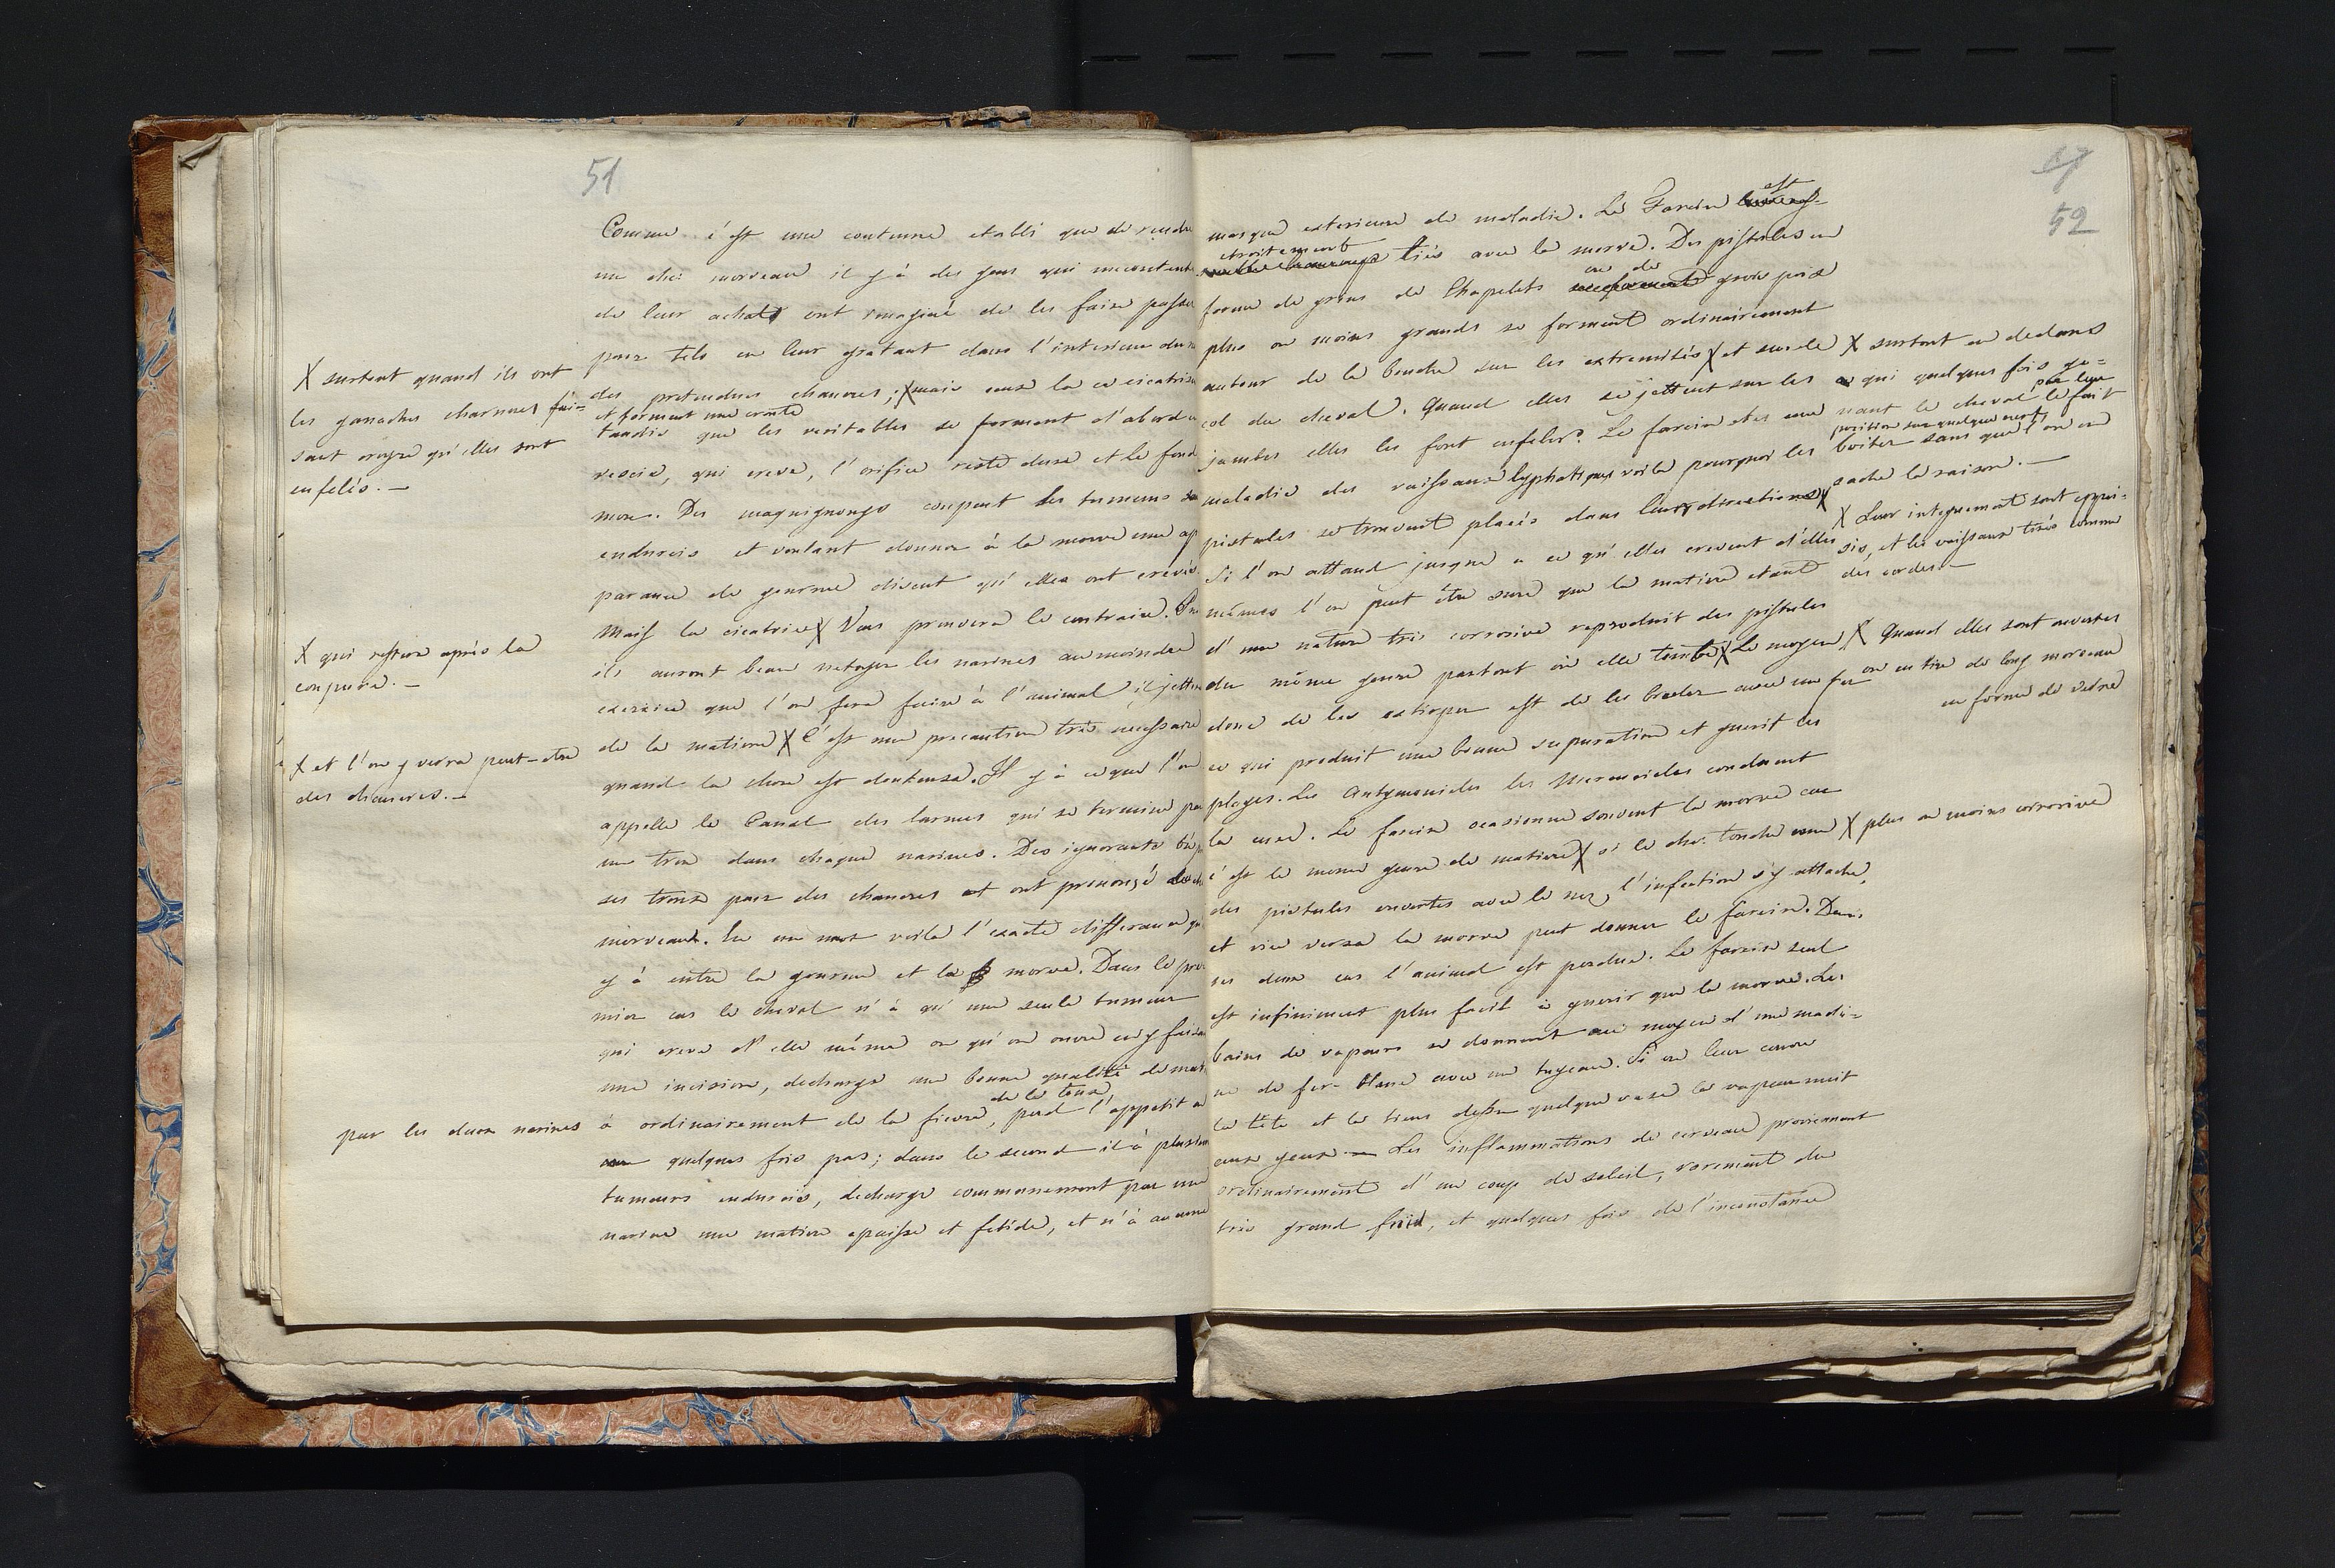 51
Comme c'est une coutume etabli que de rendre
un che: morveau il y à des gens qui mecontents
de leur achat ont imaginé de les faire passer
pour tels en leur gratant dans l'interieur du
des pretendues chancres; X mais ceux la ce cicatrise
et forment une croute
tandis que les veritables se forment d'abord en
vescie, qui creve, l'orifice reste dure et le fond
mou. Des maquignongs coupent les tumeurs
endurcis et voulant donner à la morve une ap
parance de gourme disent qu'elles ont crevés.
Maiss la cicatrice X Vous prouvera le contraire.
ils auront beau netoyer les narines au moindre
exercice que l'on fera faire à l'animal il jettera
de la matiere X C'est une precaution très necessaire
quand la chose est douteuse. Il y à ce que l'on
appelle le Canal des larmes qui se termine par
un trou dans chaque narines. Des ignorants
ses troux pour des chancres et ont prenonçé
morveaux. En un mot voila l'exacte differance
y à entre la gourme et la morve. Dans le pre-
mier cas le cheval n'à qu'une seule tumeur
qui creve d'elle même ou qu'on ouvre en y faisant
une incision, decharge une bonne qualité de mat
de la toux
à ordinairement de la fievre, perd l'appetit
quelques fois pas; dans le second il à plusieurs
tumeurs endurcis, decharge communement par une
narine une matiere epaisse et fetide, et n'à aucune
X surtout quand ils ont
les ganaches charnues fai-
sant croyre qu'elles sont
enfelés. —
X qui restera après la
coupure. —
X et l'on y verra peut-etre
des chancres. —
par les deux narines
52
marque exterieure de maladie. Le Farcin est
etroitement liés avec la morve. Des pistules en
forme de grins de Chapelets ou de gros pois
plus ou moins grands se forment ordinairement
autour de la bouche sur les extremités X et sur le
col du cheval. Quand elles se jettent sur les
jambes elles les font enfeler. Le farcin etes une
maladie des vaissaux lyphatiques voila pourquoi les
pistules se trouvent placés dans leurs directions X
Si l'on attand jusque a ce qu'elles crevent d'elles
mêmes l'on peut être sure que la matiere etant
d'une nature tris corrosive reproduit des pistules
du même genre partout où elle tombe X Le moyen
donc de les extirper est de les bruler avec un fer
ce qui produit une bonne supuration et guerit les
playes. Les Antymonieles les Mercurieles conduent
la cure. Le farcin ocasionne souvent la morve car
c'est le meme genre de matiere X si le che: touche une
des pistules ouvertes avec le nez, l'infection s'y attache,
et vice versa la morve peut donner le farcin. Dans
ses deux cas l'animal est perdue. Le farcin seul
est infiniment plus facil à guerir que la morve. Les
bains de vapeurs se donnent au moyen d'une machi-
ne de fer-blanc avec un tuyeau. Si on leur couvre
la tête et la tiens dessu quelque vase la vapeur nuit
aux yeux — Les inflammations de cerveau provienent
ordinairement d'un coup de soleil, rarement du
tris grand froid, et quelques fois de l'inconstance
X surtout en dedans
qui quelques fois ge-
nant le cheval par leur
position sur quelque nerfs le fait
boiter sans que l'on en
sache la raison. —
X Leur integument sont eppai-
sis, et les vaissaux tirés comme
des cordes. —
X Quand elles sont ouvertes
on en tire de long morceau
en forme de
X plus ou moins corrosive